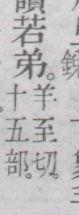 讀若弟。羊至切。
十五部。